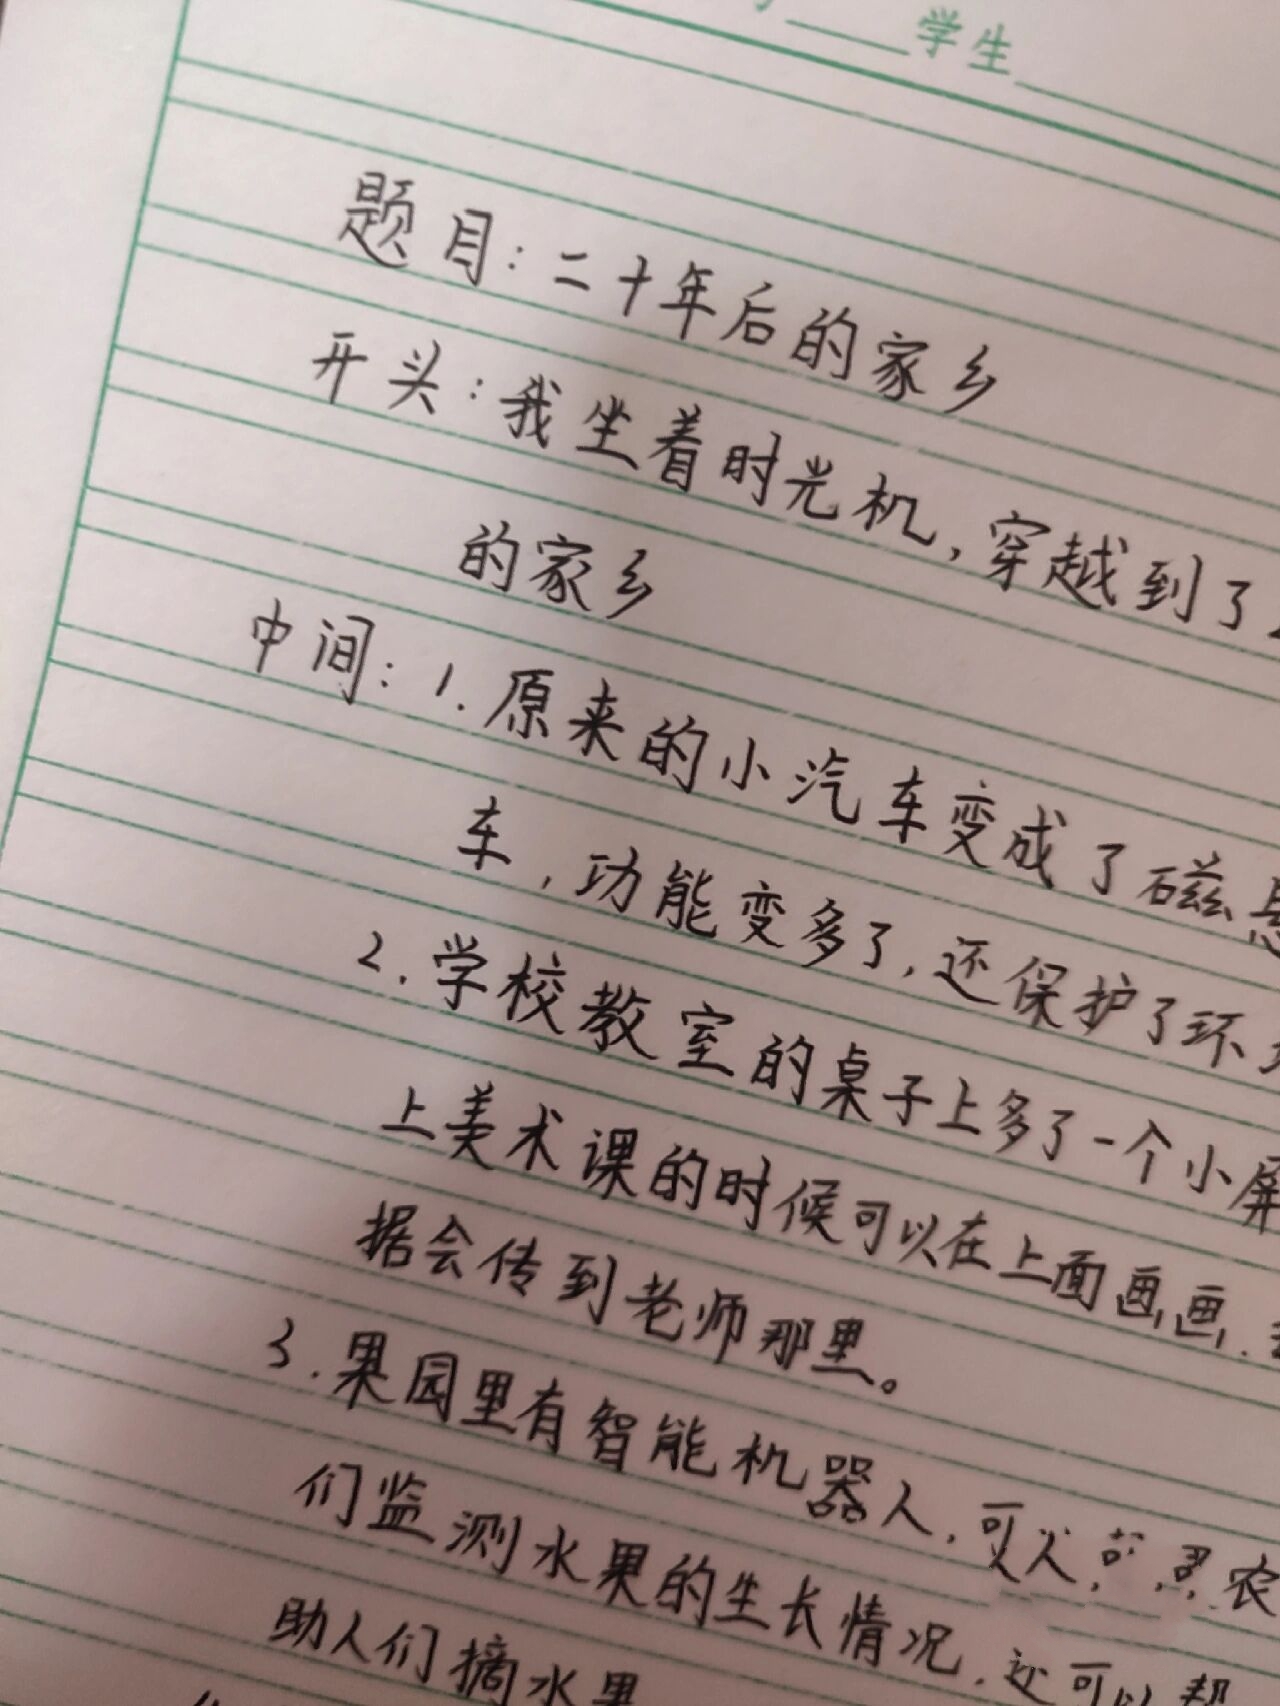 学生
题目：二十年后的家乡
开头：我坐着时光机，穿越到了
的家乡
中间：1.原来的小汽车变成了磁悬
车，功能变多了，还保护了环
2.学校教室的桌子上多了一个小屏
上美术课的时候可以在上面画画，
据会传到老师那里。
3.果园里有智能机器人，可以 农
们监测水果的生长情况，还可以帮
助人们摘水果